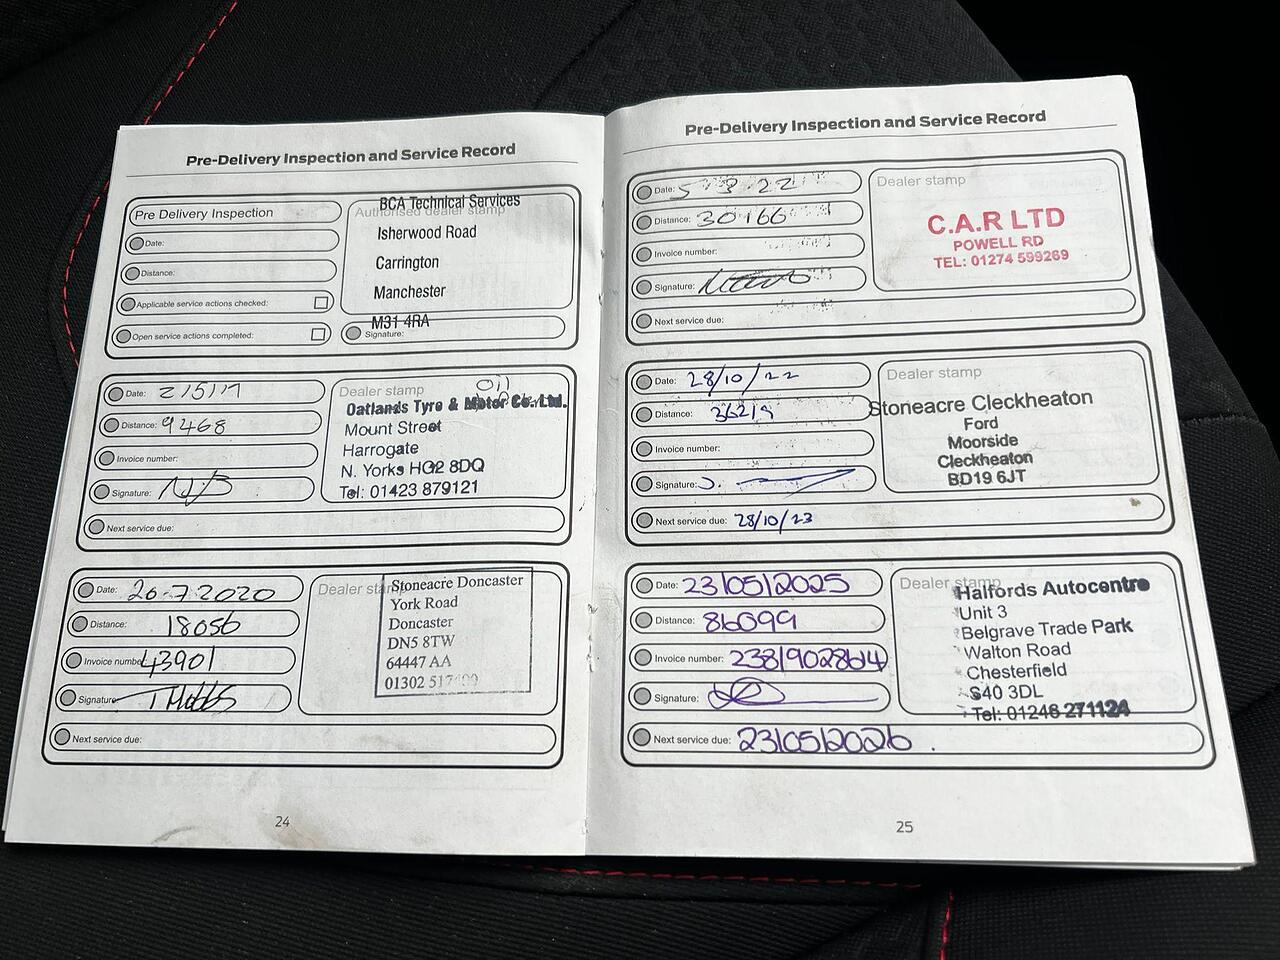 Pre-Delivery Inspection and Service Record
Pre Delivery Inspection
Date:
Distance:
Applicable service actions checked:
Open service actions completed:
Authorised dealer stamp
BCA Technical Services
Isherwood Road
Carrington
Manchester
M31 4RA
Signature:
Date: 2/5/17
Distance: 9468
Invoice number:
Signature:
Next service due:
Dealer stamp
Oil
Oatlands Tyre & Motor Co. Ltd.
Mount Street
Harrogate
N. Yorks HG2 8DQ
Tel: 01423 879121
Date: 20-7-2020
Distance: 18056
Invoice number 43901
Signature
Next service due:
Dealer stamp
Stoneacre Doncaster
York Road
Doncaster
DN5 8TW
64447 AA
01302
24
Pre-Delivery Inspection and Service Record
Date: 5 3 22
Distance: 30166
Invoice number:
Signature:
Next service due:
Dealer stamp
C.A.R LTD
POWELL RD
TEL: 01274 599269
Date: 28/10/22
Distance: 36219
Invoice number:
Signature:
Next service due: 28/10/23
Dealer stamp
Stoneacre Cleckheaton
Ford
Moorside
Cleckheaton
BD19 6JT
Date: 23/05/2025
Distance: 86099
Invoice number: 23819028614
Signature:
Next service due: 23/05/2026.
Dealer stamp
Halfords Autocentre
Unit 3
Belgrave Trade Park
Walton Road
Chesterfield
S40 3DL
Tel: 01246 271124
25